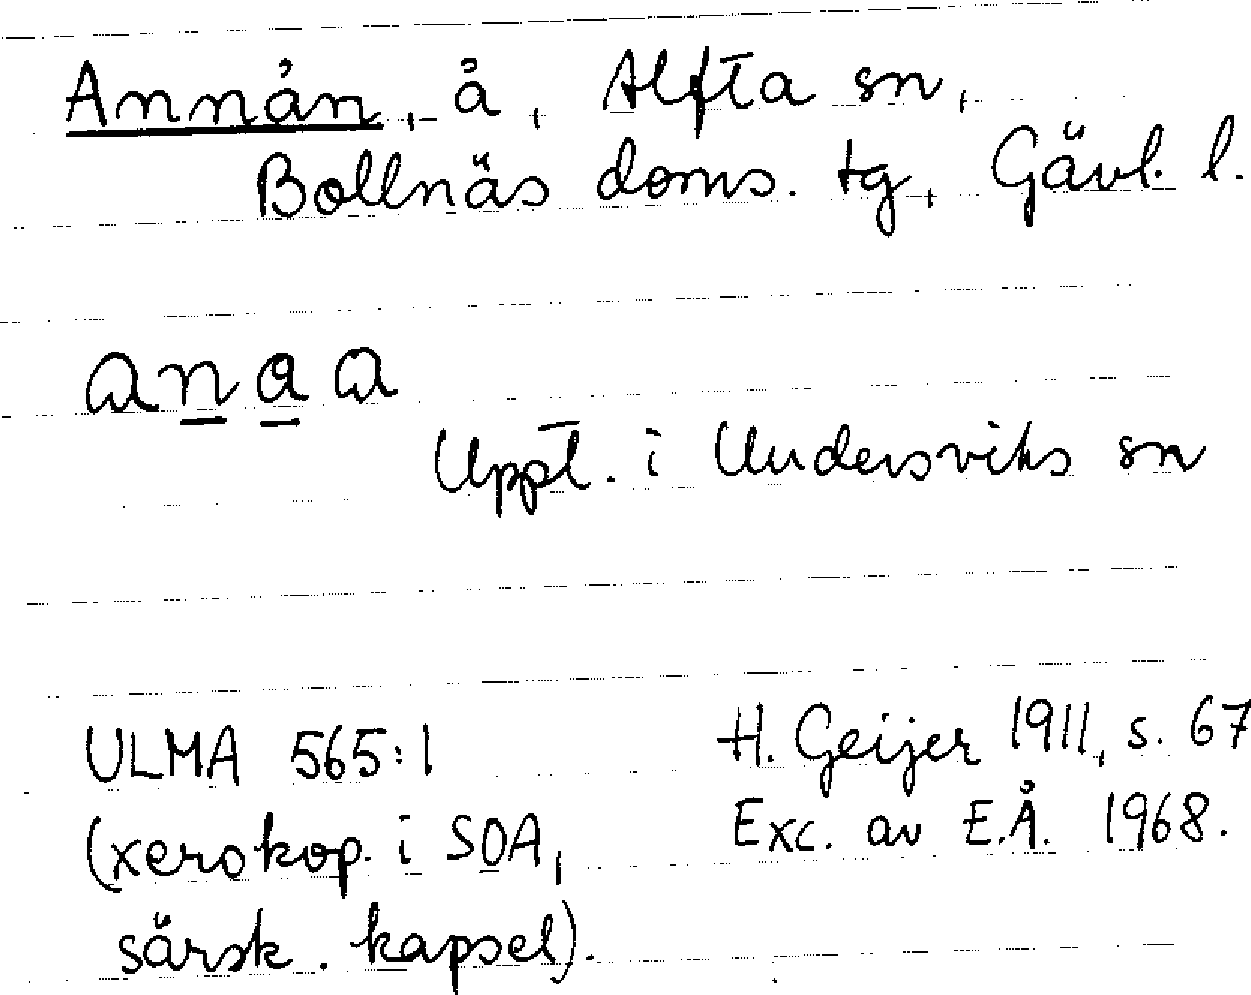 Annån, å, Alfta sn,
Bollnäs doms. tg, Gävl. l.
anaa
Uppt. i Undersviks sn
ULMA 565:1
(xerokop. i SOA,
särsk. kapsel).
H. Geijer 1911, s. 67
Exc. av E.Å. 1968.